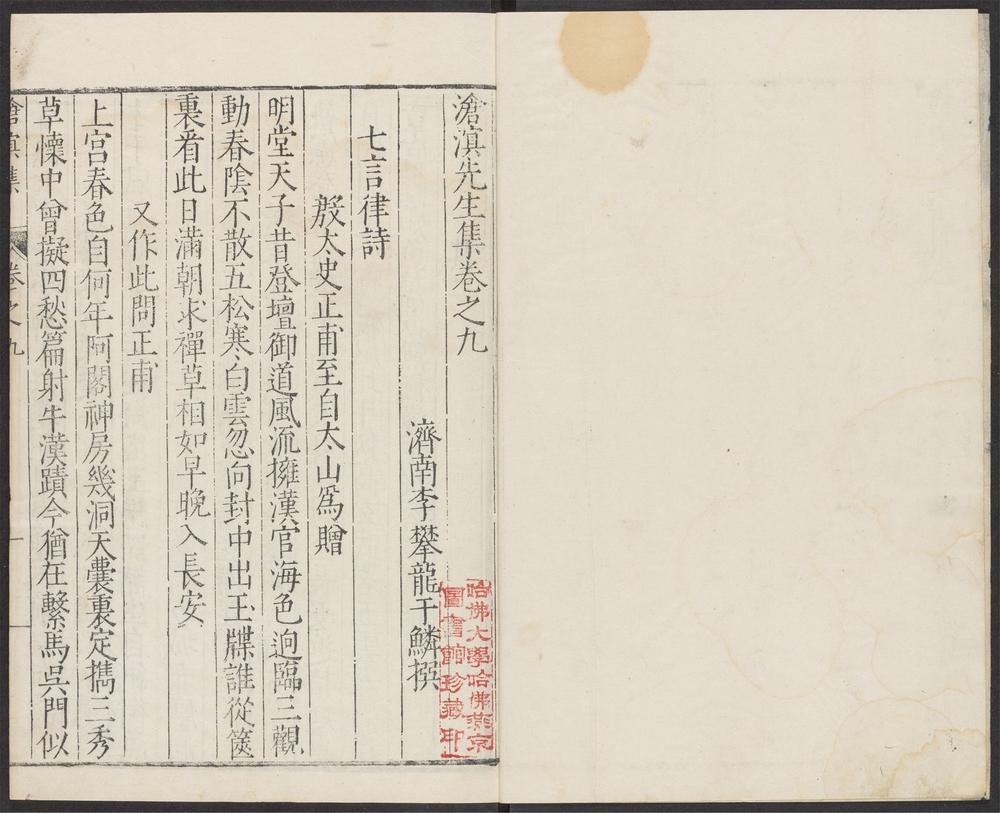 滄溟先生集卷之九
濟南李攀龍于鱗撰
哈佛大學哈佛燕京
圖書館珍藏印
七言律詩
殷太史正甫至自太山爲贈
明堂天子昔登壇御道風流擁漢官海色逈臨三觀
動春陰不散五松寒白雲忽向封中出玉牒誰從篋
裏看此日滿朝求禪草相如早晚入長安
又作此問正甫
上宮春色自何年阿閣神房幾洞天囊裏定携三秀
草懷中曾擬四愁篇射牛漢蹟今猶在繫馬吳門似
滄溟集 卷之九 一